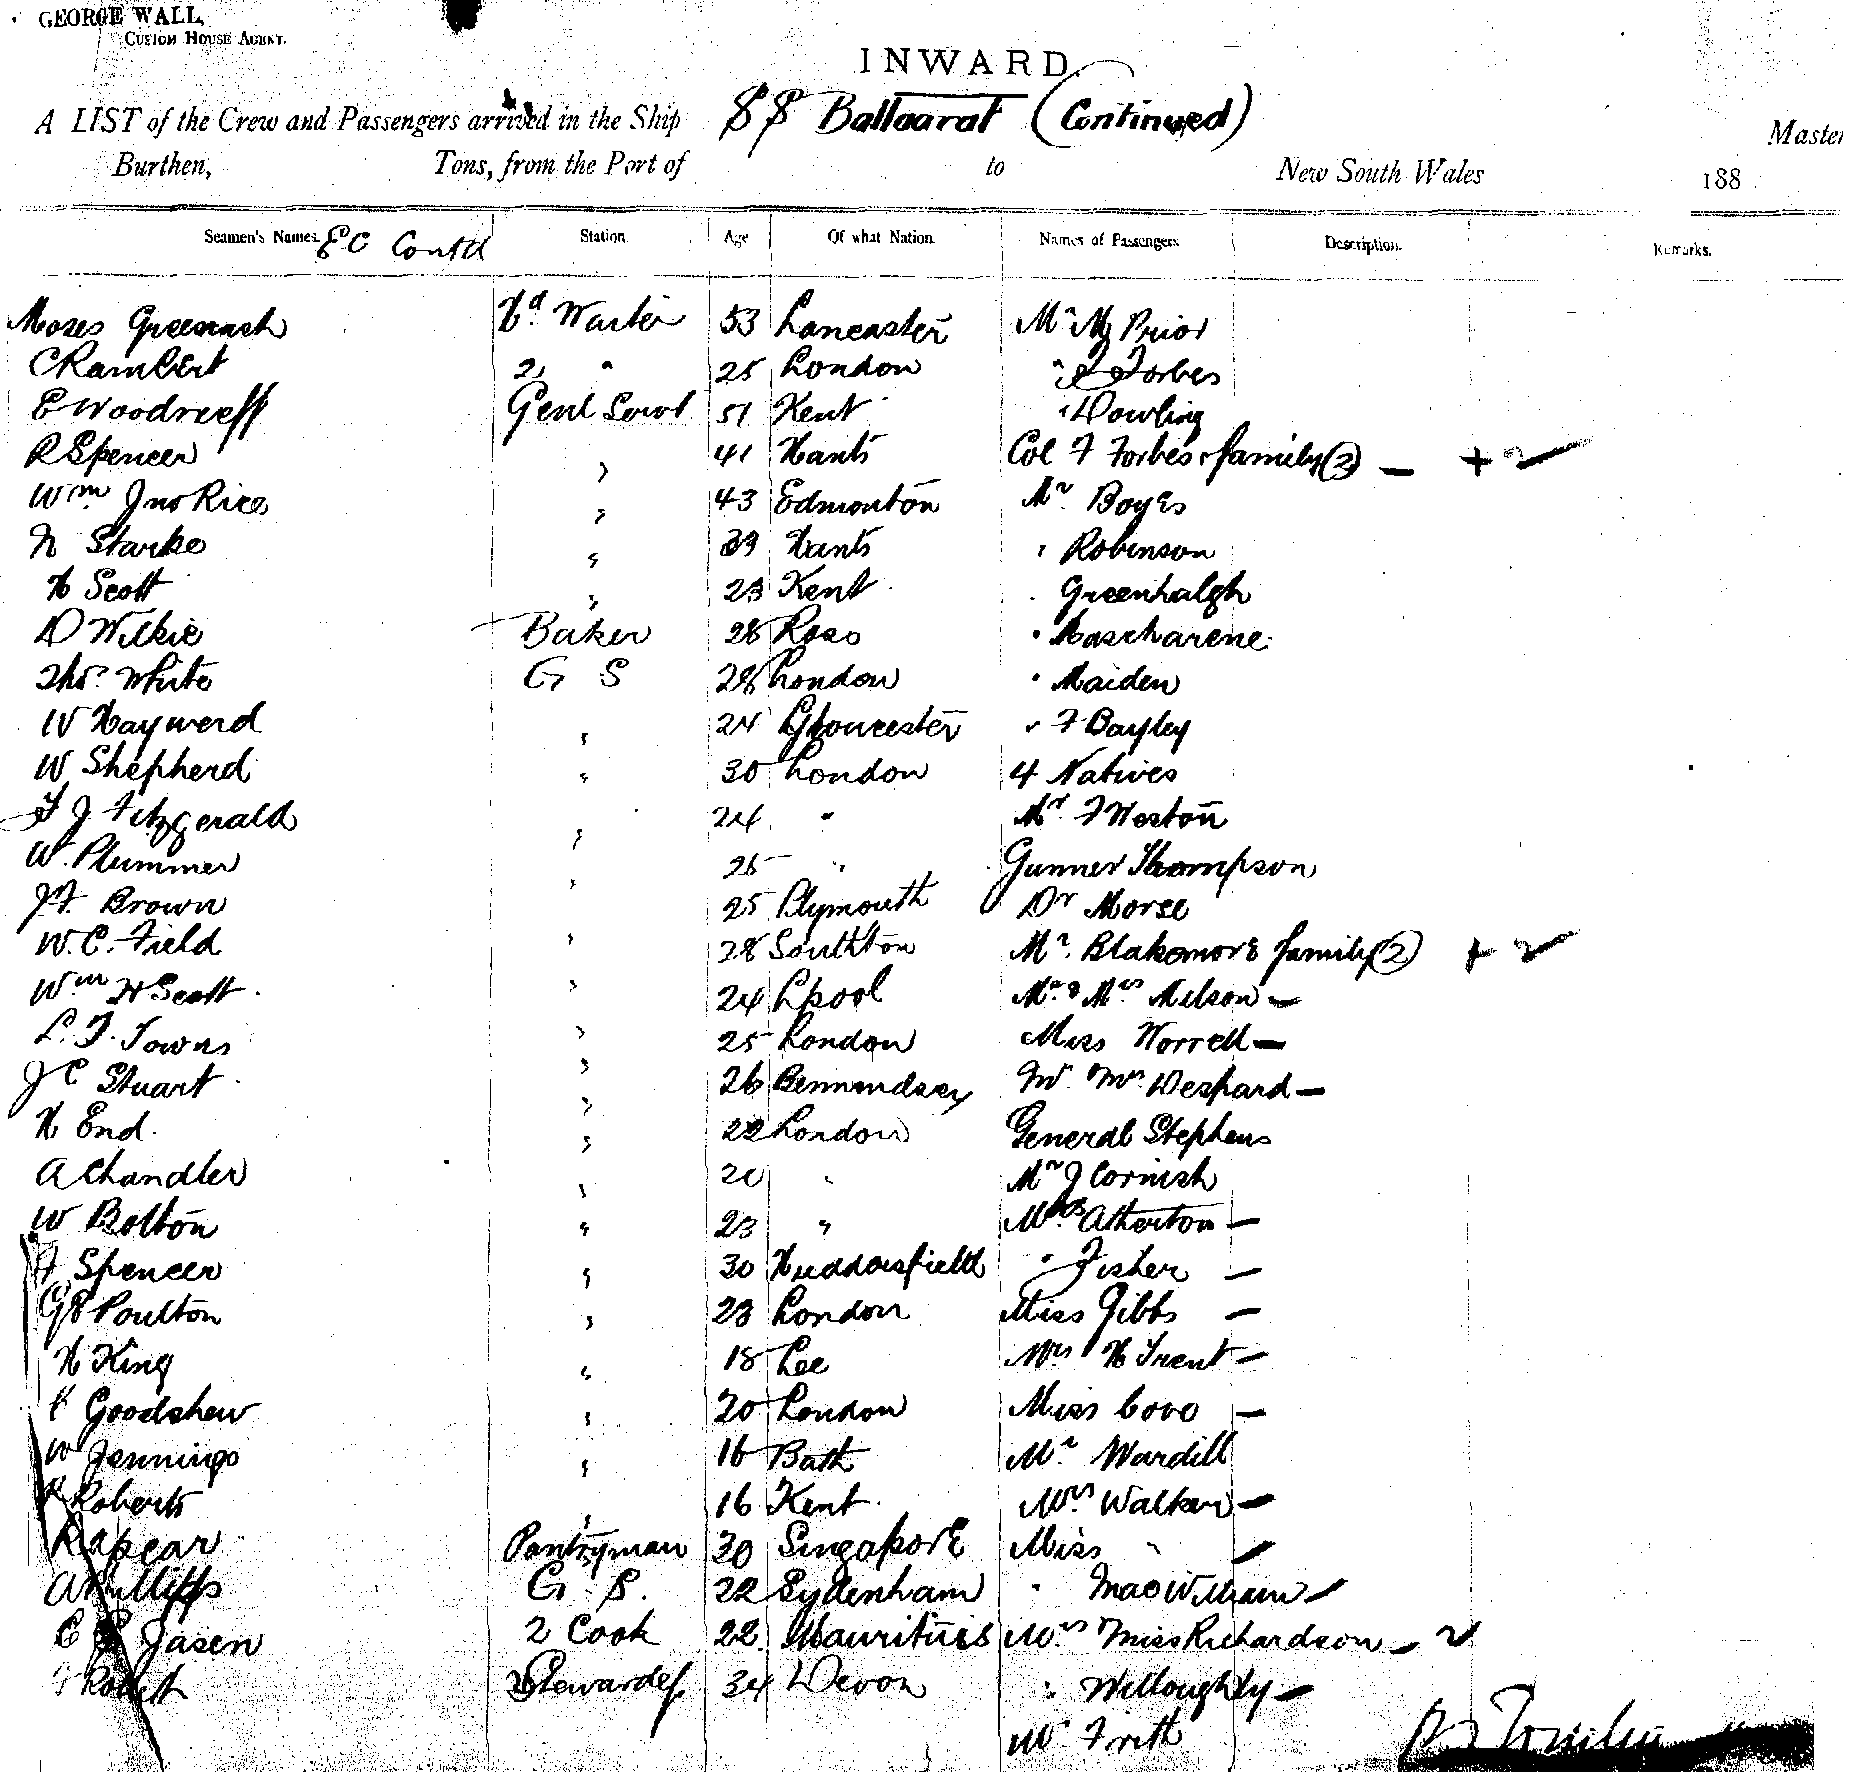 GEORGE WALL,
CUSTOM HOUSE AGENT.
INWARD.
A LIST of the Crew and Passengers arrived in the Ship SS Ballaarat (Continued) Master
Burthen, Tons, from the Port of to New South Wales 188
Seamen's Names. EC Contd Station Age Of what Nation. Names of Passengers Description. Remarks.
Moses Hd Waiter 53 Lancaster Mr Prior
C Rambert 2 " 25 London " Forbes
E Woodrooff Genl Servt 51 Kent " Dowling
R Spencer " 41 Hants Col F Forbes & family (3) — +
Wm Jno Rice " 43 Edmonton Mr Boyes
N Starke " 39 Hants " Robinson
H Scott " 23 Kent " Greenhalgh
D Wilkie Baker 28 Ross " Mascharene
Thos White G S 28 London " Maiden
W Hayward " 24 Gloucester " F Bayley
W Shepherd " 30 London 4 Natives
F J Fitzgerald " 24 " Mr F Weston
W. Plummer " 25 " Gunner Thompson
J F Brown " 25 Plymouth Dr Morse
W. C. Field " 28 Southton Mr Blakemore family (2) + 2
Wm H Scott " 24 Lpool Mr & Mrs Nelson —
L. F. Towns " 25 London Miss Worrell —
J C Stuart " 26 Bermondsey Mr Mrs Despard —
H End " 22 London General Stephens
A Chandler " 20 " Mr J Cornish
W Bolton " 23 " Mrs Atherton —
F Spencer " 30 Huddersfield " Fisher —
G Poulton " 23 London Miss Gibbs —
H King " 18 Lee Mrs H Trent —
Goodshew " 20 London Miss —
W Jennings " 16 Bath Mr Wardill
Roberts " 16 Kent Mrs Walker —
Pantryman 30 Singapore Miss " —
G. S. 22 Sydenham " MacWilliam —
C Jasen 2 Cook 22 Mauritius Mrs Miss Richardson — 2
Stewardess 34 Devon " Willoughby —
Mr Frith